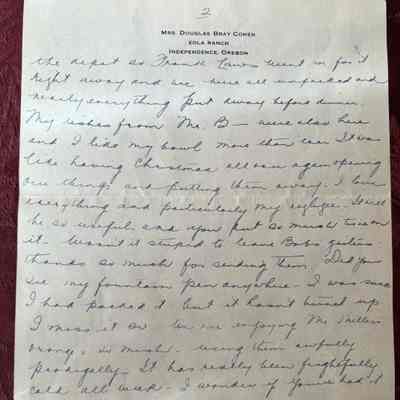 2
MRS. DOUGLAS BRAY COHEN
EOLA RANCH
INDEPENDENCE, OREGON
the depot so Frank went in for it
right away and we were all unpacked and
nearly everything put away before dinner.
My dishes from Mr. B— were also here
and I like my bowl more than ever. It was
like having Christmas all over again opening
our things and putting them away. I love
everything and particularly my It will
be so useful and you put so much time on
it. Wasn't it stupid to leave Bob's
thanks so much for sending them. Did you
see my fountain pen anywhere. I was sure
I had packed it but it hasn't turned up
I miss it so. We are enjoying Mr. Millers
so much. using them awfully
prodigally. It has really been frightfully
cold all week. I wonder if you've had it